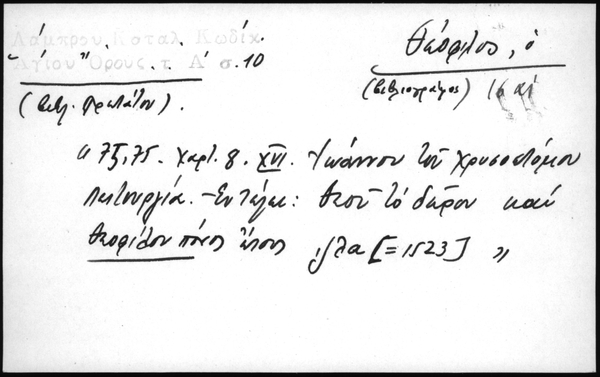 Λάμπρου Καταλ. Κωδίκ.
Ἁγίου Ὄρους τ. Α΄ σ. 10
(Βιβλ. Πρωτάτου).
Θεόφιλος, ὁ
(βιβλιογράφος) 16 αἰ
"75,75. χαρτ. 8. XVI. Ἰωάννου τοῦ Χρυσοστόμου
Λειτουργία. – Ἐν τέλει: Θεοῦ τὸ δῶρον καὶ
Θεοφίλου πόνος ἔτους ͵ζλα [=1523] "